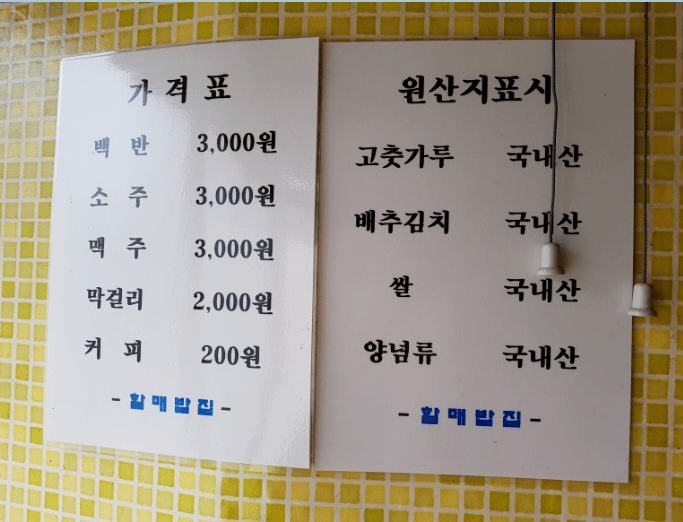 가격표
백 반 3,000원
소 주 3,000원
맥 주 3,000원
막걸리 2,000원
커 피 200원
- 할매밥집 -
원산지표시
고춧가루 국내산
배추김치 국내산
쌀 국내산
양념류 국내산
- 할매밥집 -